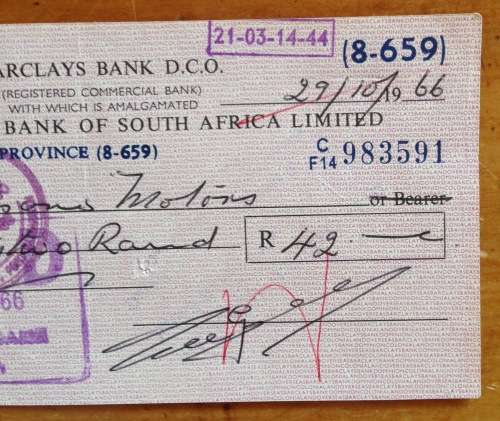 21-03-14-44
(8-659)
ARCLAYS BANK D.C.O.
(REGISTERED COMMERCIAL BANK)
WITH WHICH IS AMALGAMATED
29/10/1966
BANK OF SOUTH AFRICA LIMITED
PROVINCE (8-659)
C
F14 983591
Motors or Bearer
two Rand
R 42.—
66